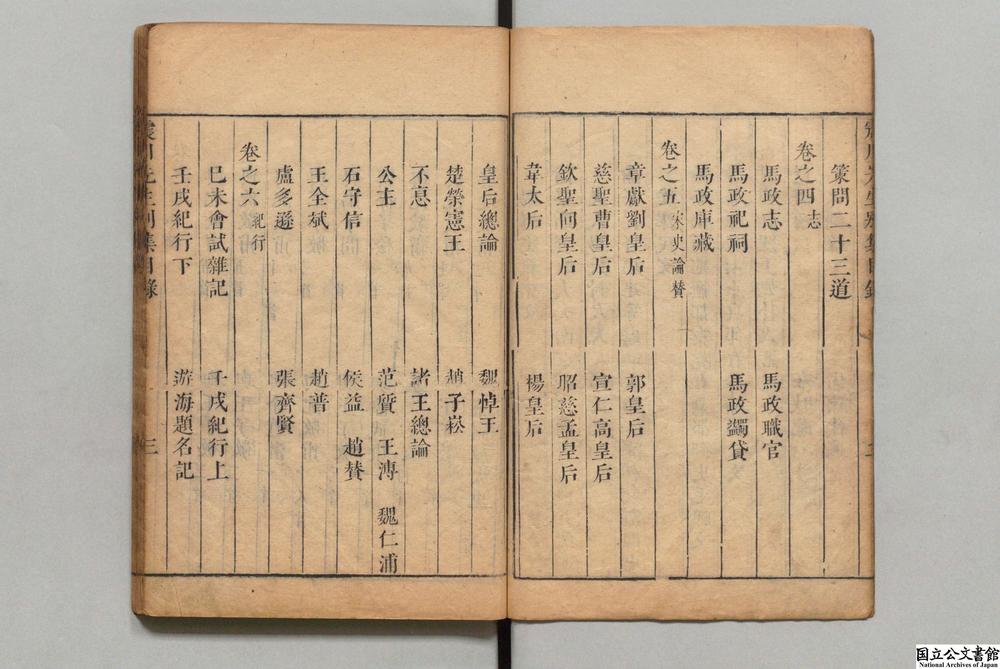 震川先生別集目録
策問二十三道
卷之四 志
馬政志 馬政職官
馬政祀祠 馬政蠲貸
馬政庫藏
卷之五 宋史論贊
章獻劉皇后 郭皇后
慈聖曹皇后 宣仁高皇后
欽聖向皇后 昭慈孟皇后
韋太后 楊皇后
皇后總論 魏悼王
楚榮憲王 趙子崧
不息 諸王總論
公主 范質 王溥 魏仁浦
石守信 侯益 趙贊
王全斌 趙普
盧多遜 張齊賢
卷之六 紀行
巳未會試雜記 壬戌紀行上
壬戌紀行下 游海題名記
震川先生別集目錄 三
国立公文書館
National Archives of Japan